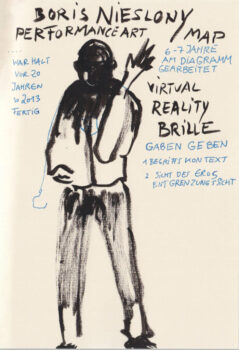 BORIS NIESLONY
PERFORMANCE ART
MAP
6-7 JAHRE
AM DIAGRAMM
GEARBEITET
WAR HALT
VOR 20
JAHREN
2013
FERTIG
VIRTUAL
REALITY
BRILLE
GABEN GEBEN
1. BEGRIFFS KONTEXT
2. SICHT DES EROS
ENTGRENZUNGSSICHT